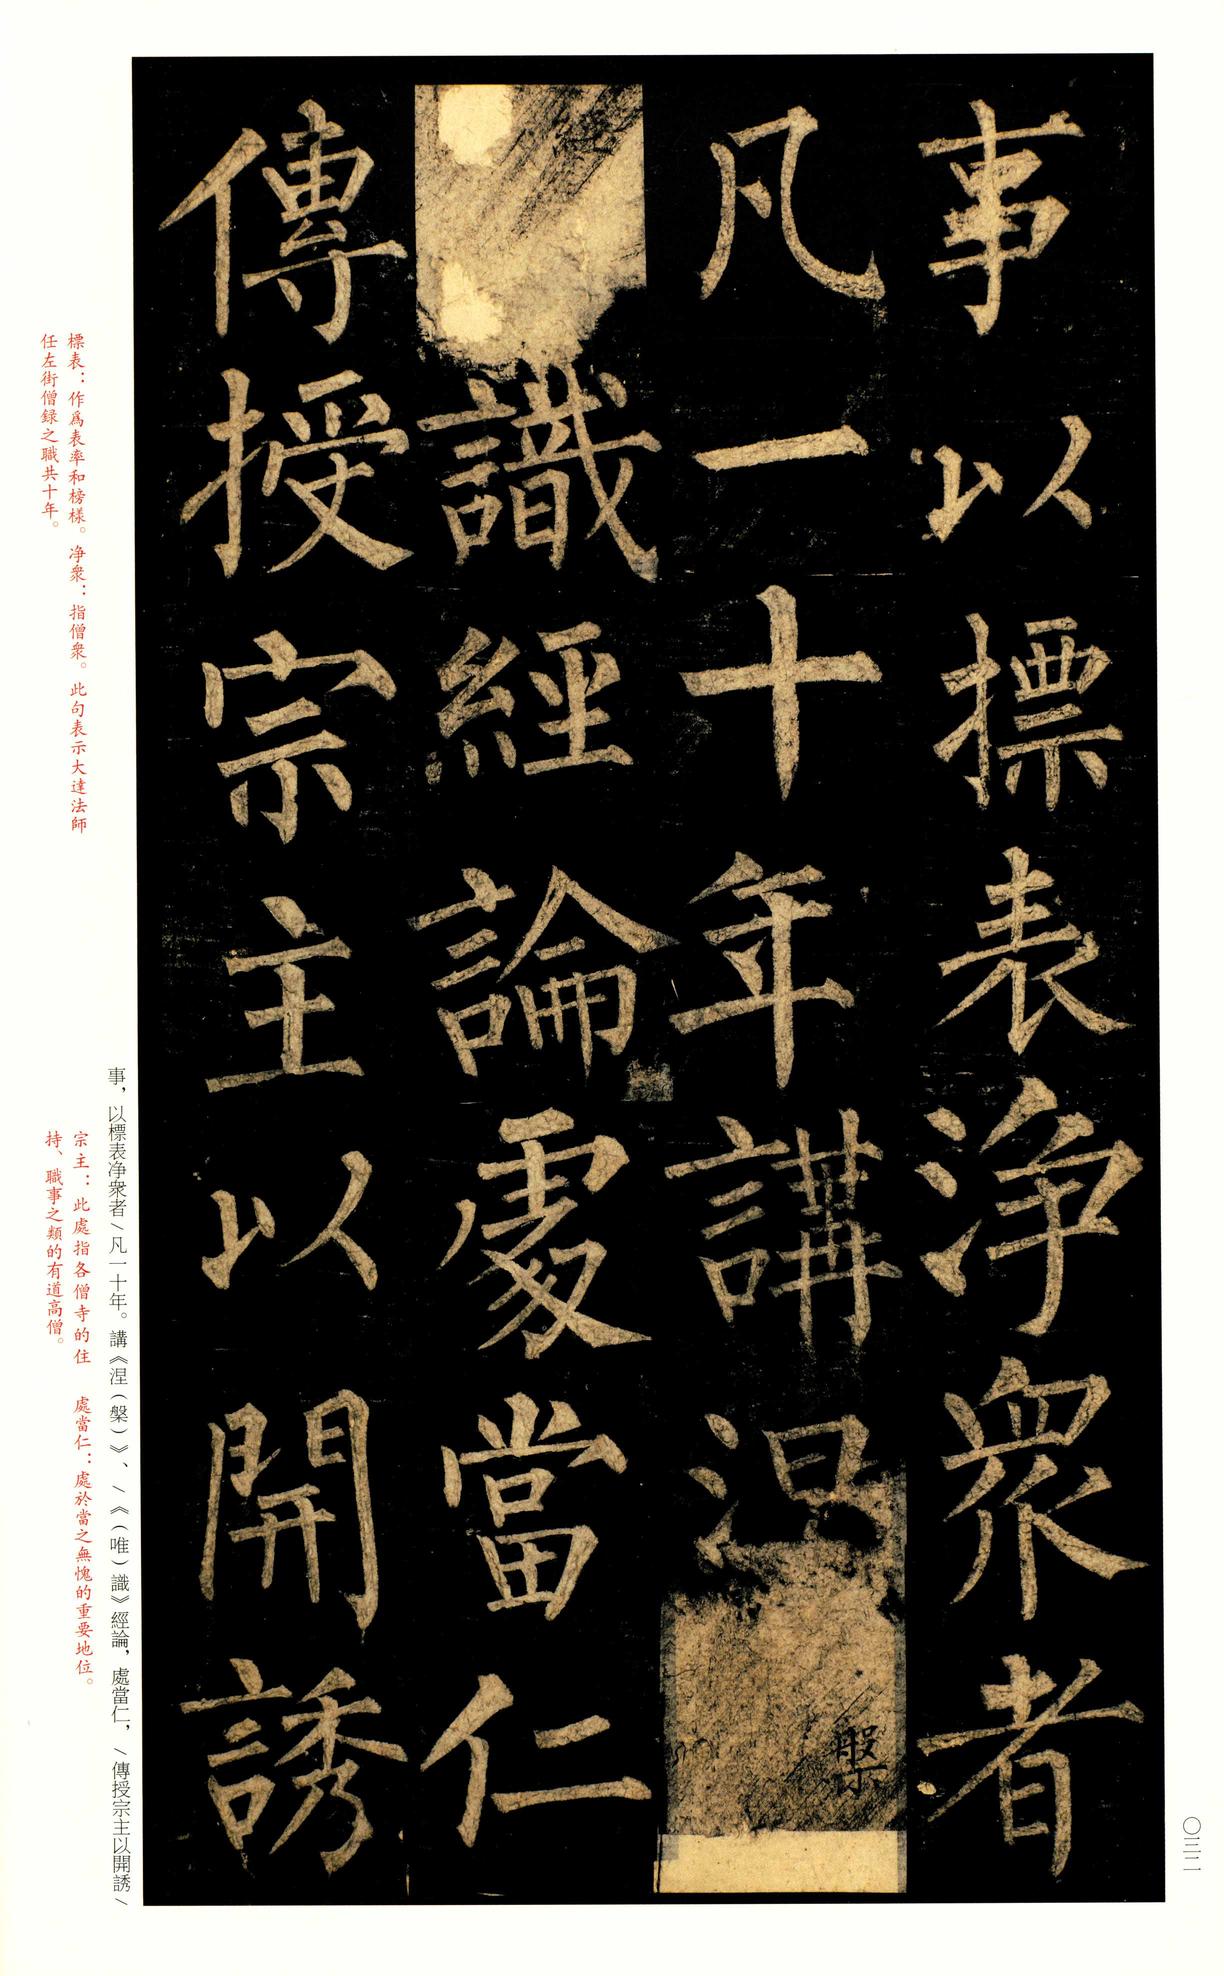 事以摽表淨衆者
凡一十年講涅槃
識經論處當仁
傳授宗主以開誘
事，以標表净衆者/凡一十年。講《涅（槃）》、/《（唯）識》經論，處當仁，/傳授宗主以開誘/
標表：作爲表率和榜樣。净衆：指僧衆。此句表示大達法師
任左街僧録之職共十年。
宗主：此處指各僧寺的住
持、職事之類的有道高僧。
處當仁：處於當之無愧的重要地位。
〇三二